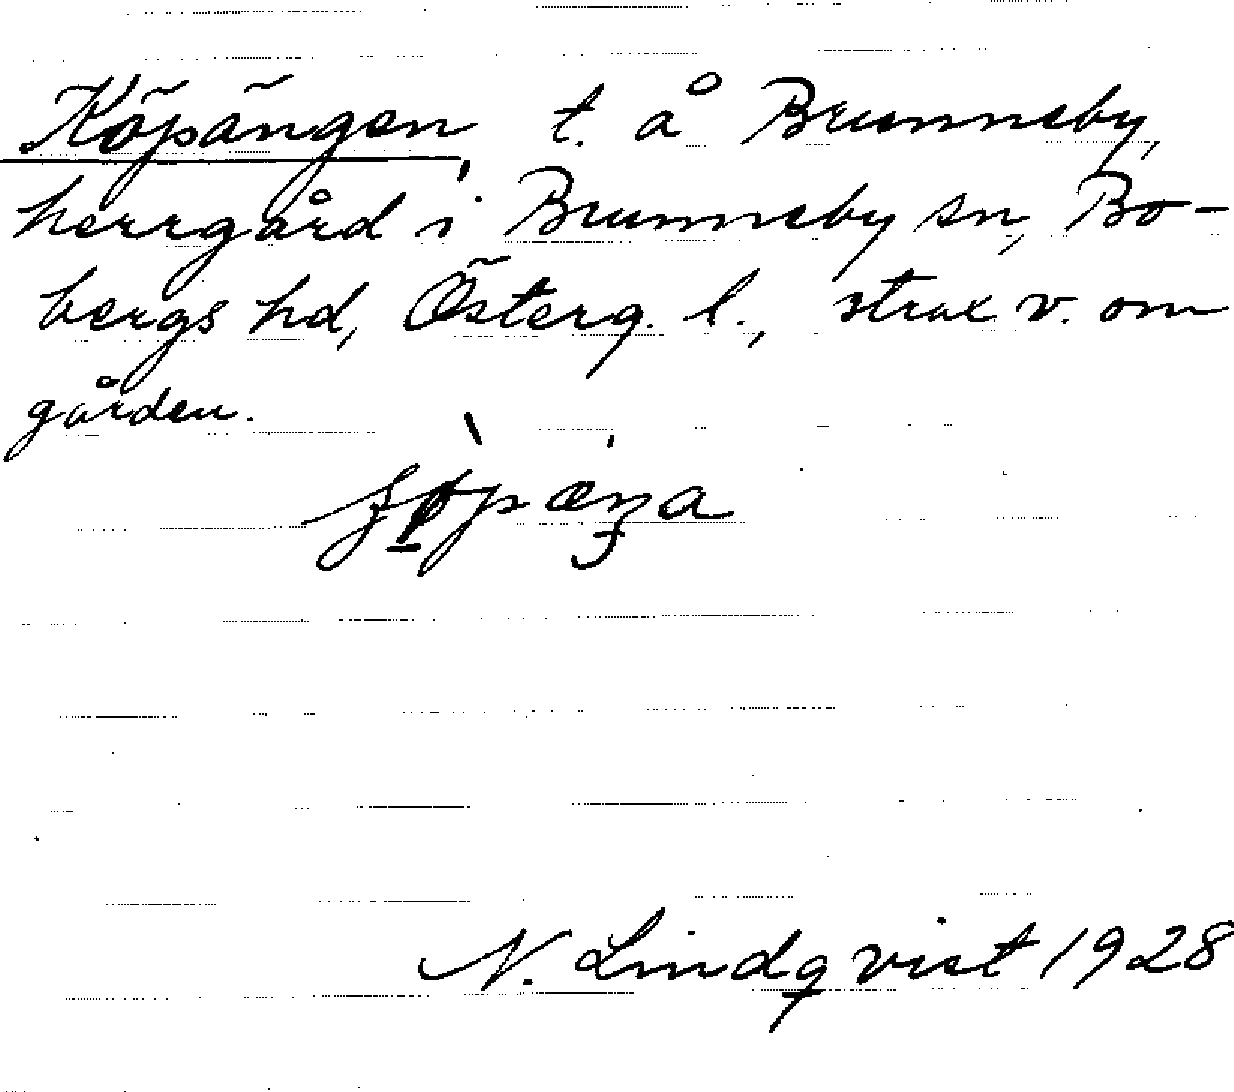 Köpängen, t. å Brunneby,
herrgård i Brunneby sn, Bo-
bergs hd, Österg. l., strax v. om
gården.
N. Lindqvist 1928